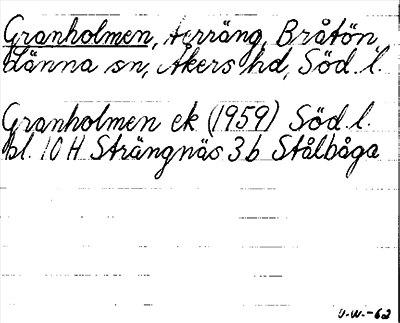 Granholmen, terräng, Bråtön,
Länna sn, Åkers hd, Söd. l.
Granholmen ek (1959) Söd. l.
bl. 10 H Strängnäs 3b Stålbåga
U.W.-62